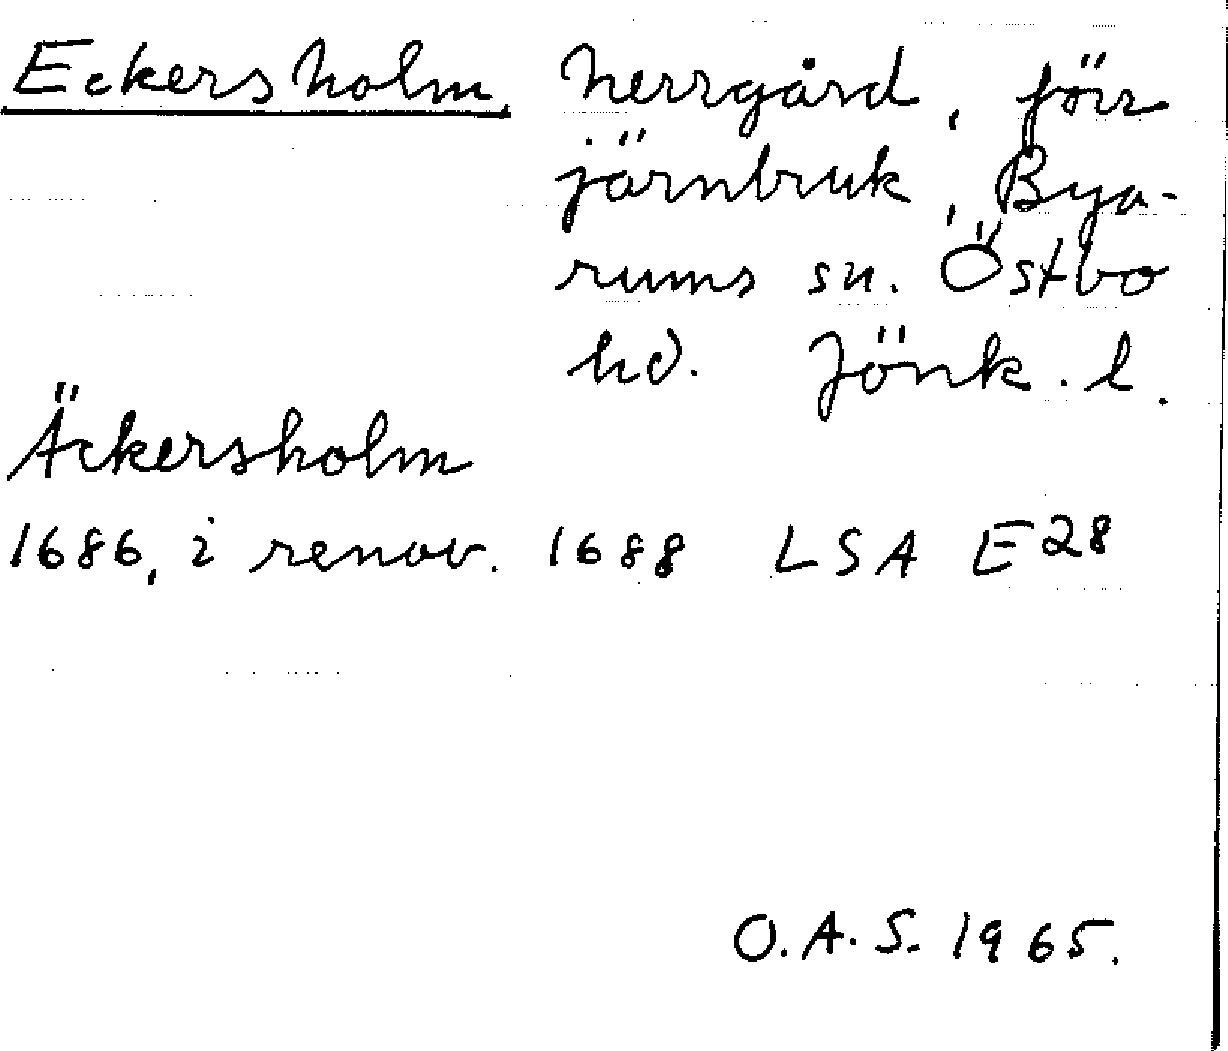 Eckersholm, herrgård, förr
järnbruk, Bya-
rums sn. Östbo
hd. Jönk. l.
Äckersholm
1686, i renov. 1688 LSA E28
O.A.S. 1965.